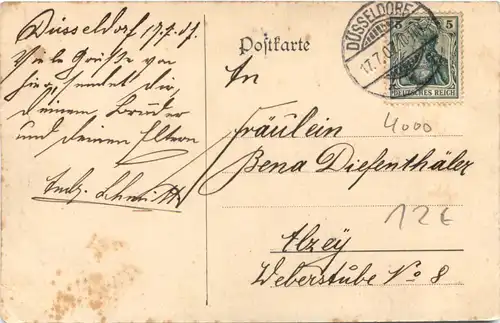 Düsseldorf 17.7.07.
Viele Grüße von
hier, sendet dir,
deinem Bruder
und deinen Eltern
Schmitt
Postkarte
DÜSSELDORF
17.7.07
5 5
DEUTSCHES REICH
An
4000
Fräulein
Bena Diefenthäler
12€
Alzey
Weberstube No 8